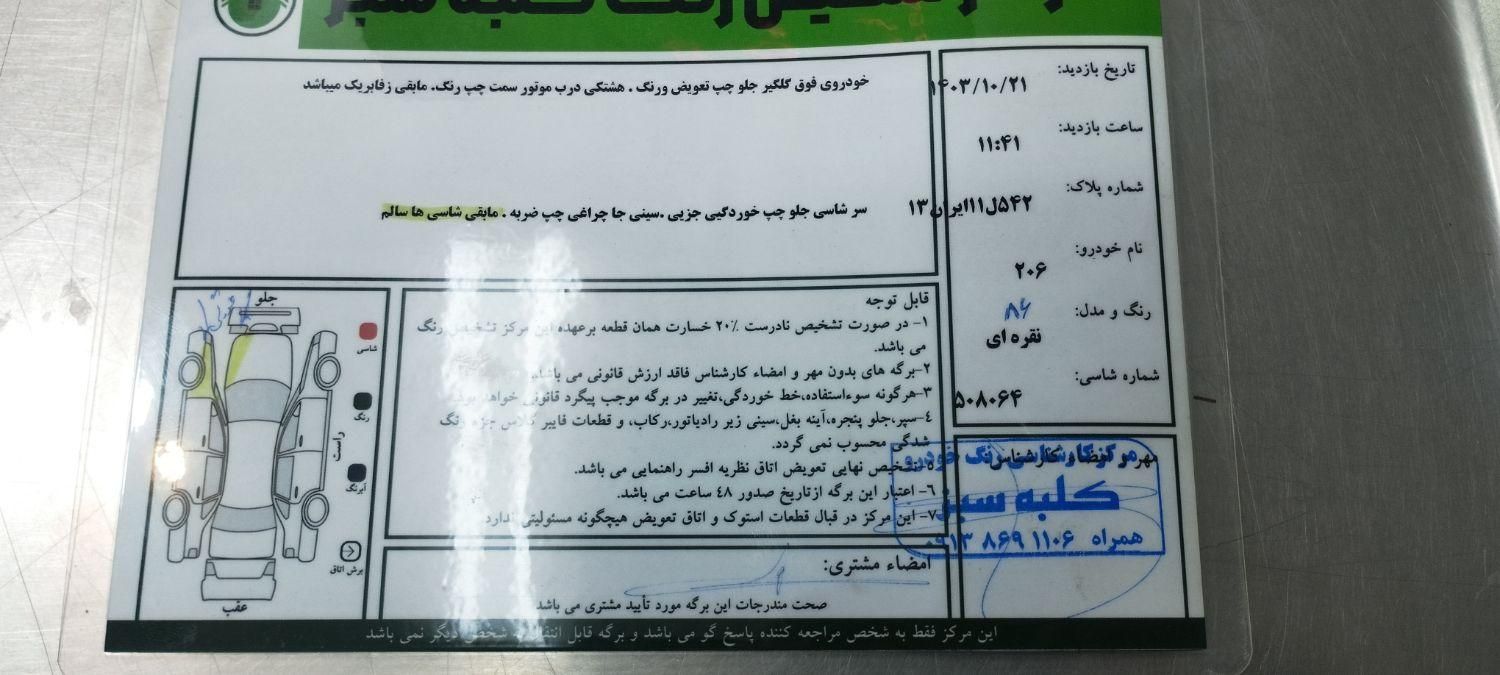 رنگ کلبه سبز
تاریخ بازدید:
۱۴۰۳/۱۰/۲۱
ساعت بازدید:
۱۱:۴۱
شماره پلاک:
۵۴۲ل۱۱ایران۱۳
نام خودرو:
۲۰۶
رنگ و مدل:
۸۶
نقره ای
شماره شاسی:
۵۰۸۰۶۴
خودروی فوق گلگیر جلو چپ تعویض ورنگ . هشتکی درب موتور سمت چپ رنگ. مابقی زفابریک میباشد
سر شاسی جلو چپ خوردگیی جزیی .سینی جا چراغی چپ ضربه . مابقی شاسی ها سالم
قابل توجه
۱- در صورت تشخیص نادرست ۲۰٪ خسارت همان قطعه برعهده این مرکز تشخیص رنگ
می باشد.
۲-برگه های بدون مهر و امضاء کارشناس فاقد ارزش قانونی می باشد.
۳-هرگونه سوءاستفاده،خط خوردگی،تغییر در برگه موجب پیگرد قانونی خواهد بود.
۴-سپر،جلو پنجره،آینه بغل،سینی زیر رادیاتور،رکاب، و قطعات فایبر گلاس جزء رنگ
شدگی محسوب نمی گردد.
۵-تشخیص نهایی تعویض اتاق نظریه افسر راهنمایی می باشد.
۶- اعتبار این برگه ازتاریخ صدور ۴۸ ساعت می باشد.
۷- این مرکز در قبال قطعات استوک و اتاق تعویض هیچگونه مسئولیتی ندارد
مهر و امضاء کارشناس
مرکز کارشناسی رنگ خودرو
کلبه سبز
همراه ۰۹۱۳ ۸۶۹ ۱۱۰۶
جلو
شاسی
رنگ
راست
آبرنگ
برش اتاق
عقب
امضاء مشتری:
صحت مندرجات این برگه مورد تأیید مشتری می باشد
این مرکز فقط به شخص مراجعه کننده پاسخ گو می باشد و برگه قابل انتقال به شخص دیگر نمی باشد